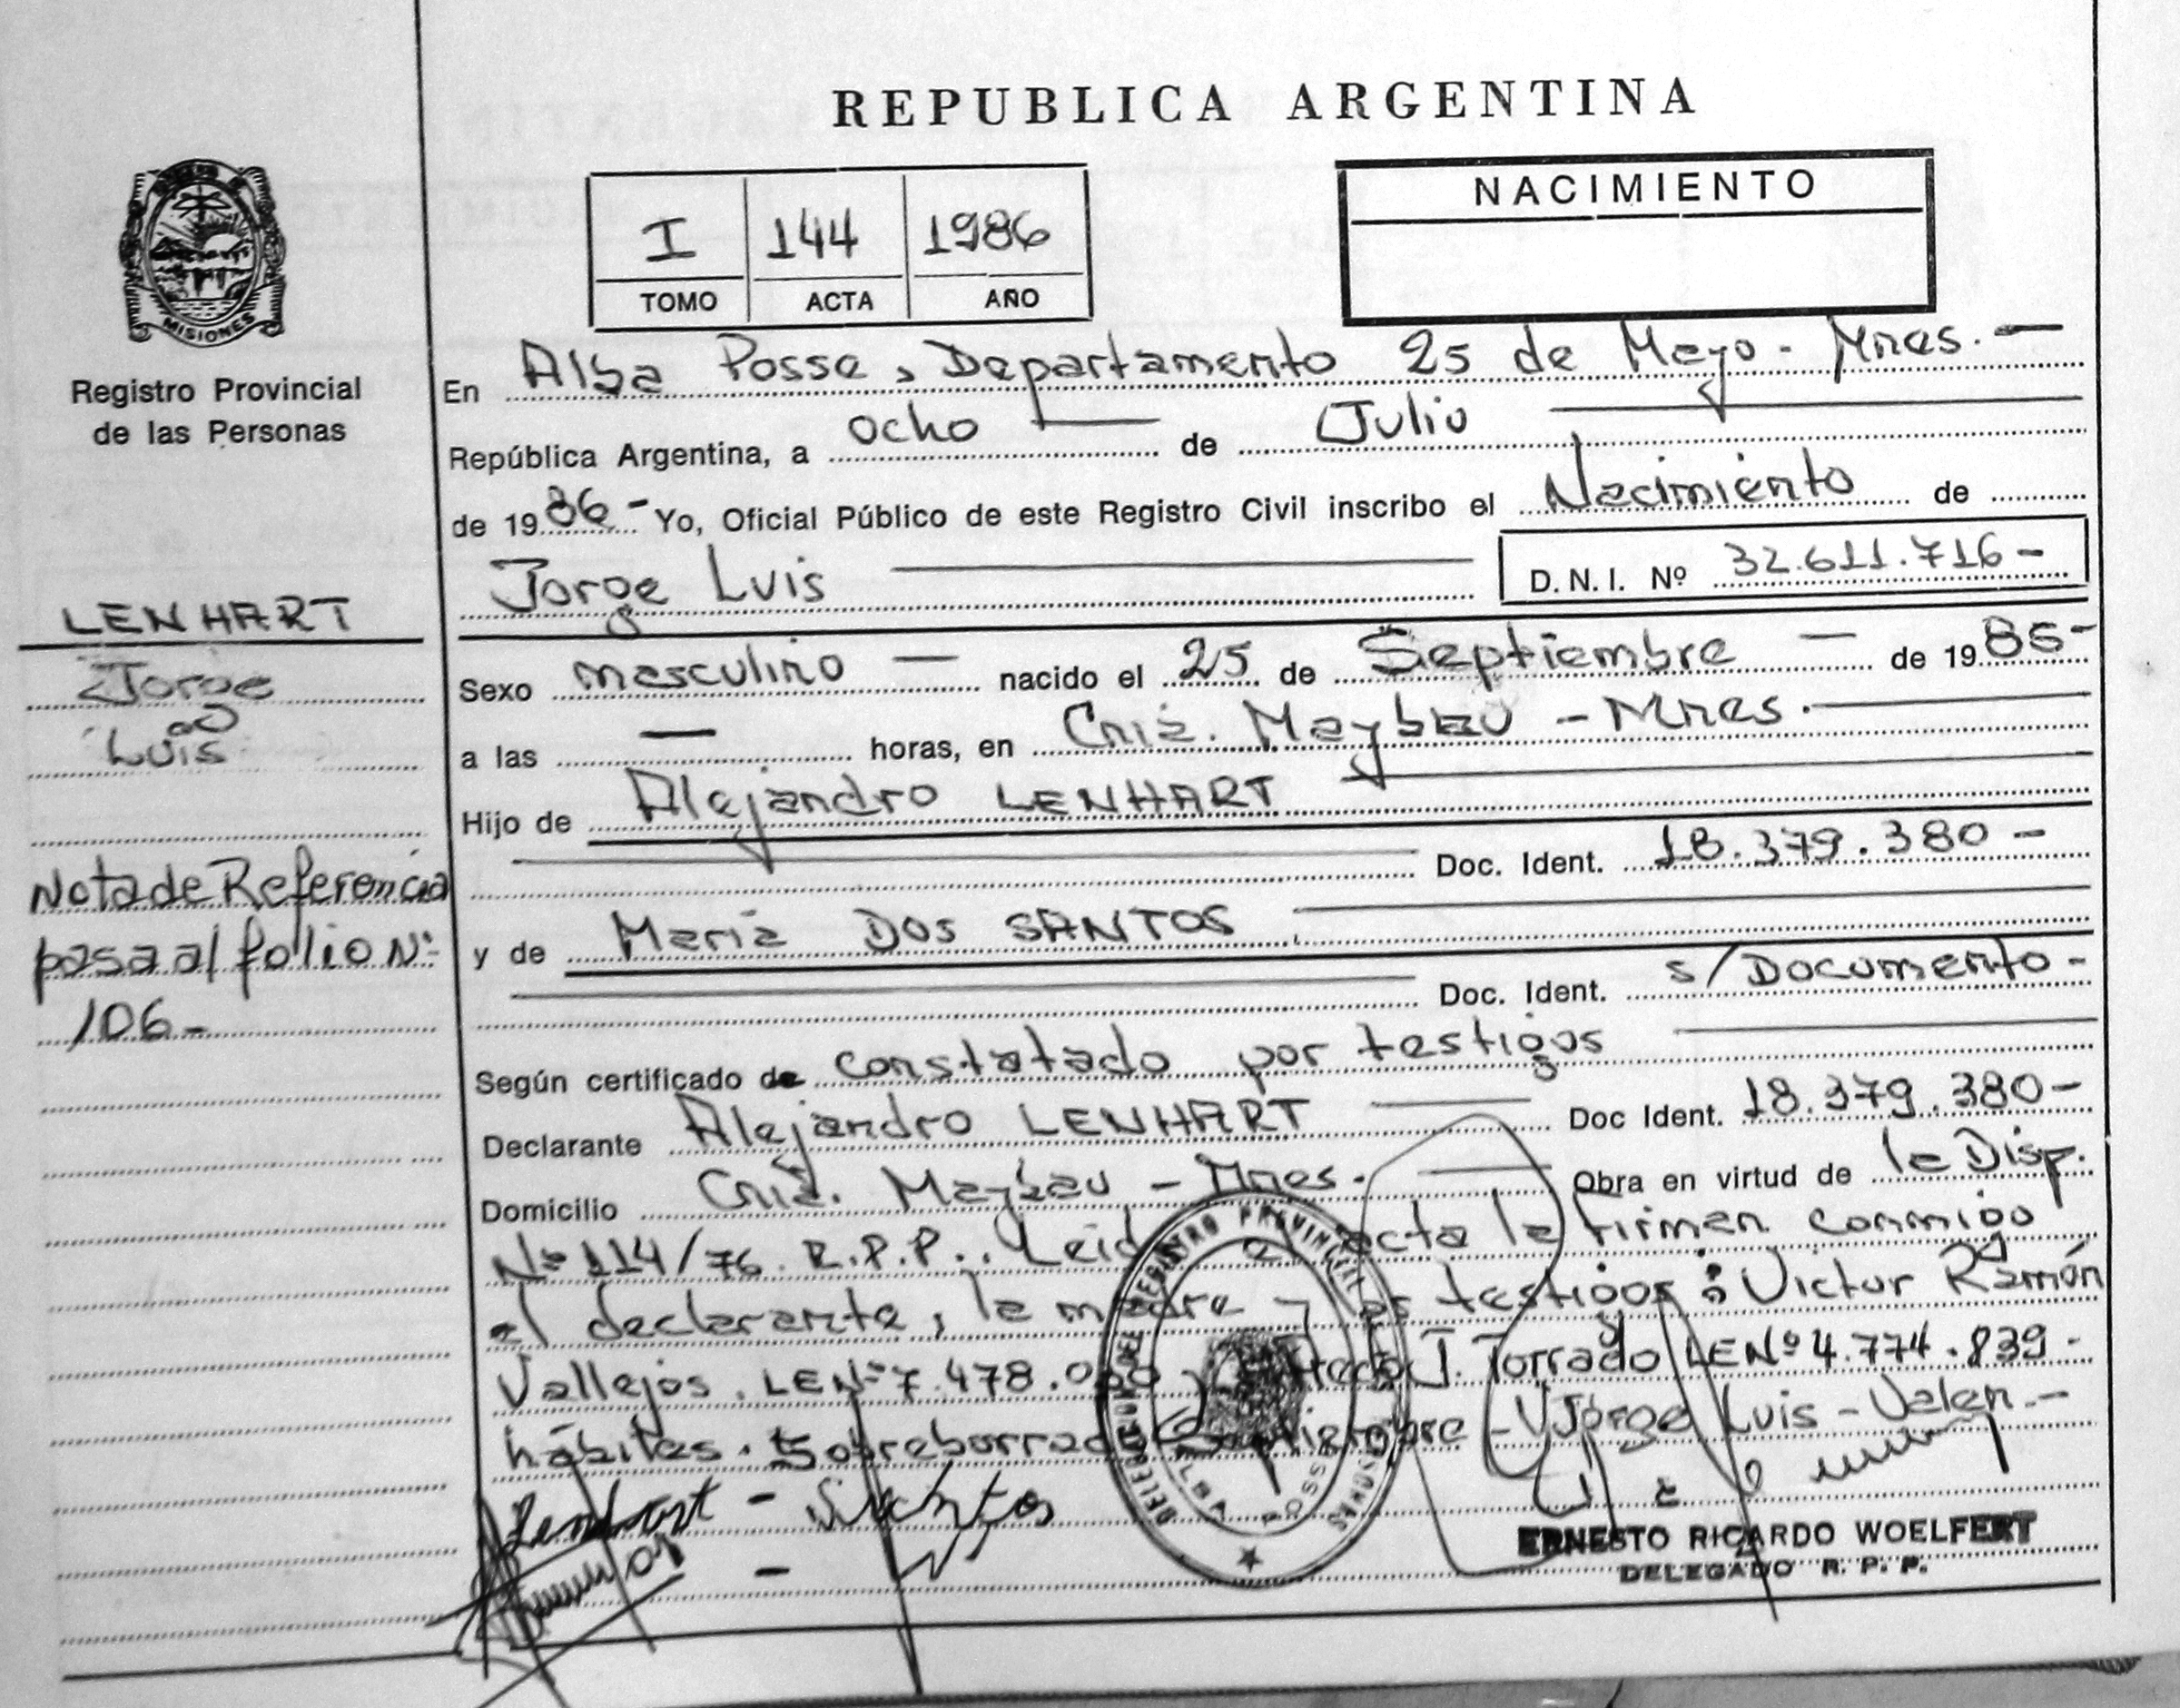 REPUBLICA ARGENTINA
MISIONES
Registro Provincial
de las Personas
I 144 1986
TOMO ACTA AÑO
NACIMIENTO
En Alba Posse, Departamento 25 de Mayo - Mnes. -
República Argentina, a ocho de Julio
de 1986 - Yo, Oficial Público de este Registro Civil inscribo el Nacimiento de
Jorge Luis
D.N.I. Nº 32.611.716 -
LENHART
Jorge
Luis
Sexo masculino - nacido el 25 de Septiembre - de 1985 -
a las - horas, en Cnia. Maybau - Mnes.
Hijo de Alejandro LENHART
Doc. Ident. 18.379.380 -
Nota de Referencia
pasa al folio Nº
106 -
y de María DOS SANTOS
Doc. Ident. s/Documento -
Según certificado de constatado por testigos
Declarante Alejandro LENHART Doc Ident. 18.379.380 -
Domicilio Cnia. Maybau - Mnes. - Obra en virtud de la Disp.
Nº 114/76. R.P.P.. Leida el acta la firman conmigo
el declarante, la madre y los testigos: Victor Ramón
Vallejos. LENº 7.478. J. Torrado LENº 4.774.839 -
hábiles. Sobreborrado Septiembre - Jorge Luis - Valen. -
Lenhart - Santos
REGISTRO PROVINCIAL
ALBA POSSE
ERNESTO RICARDO WOELFERT
DELEGADO R. P. P.